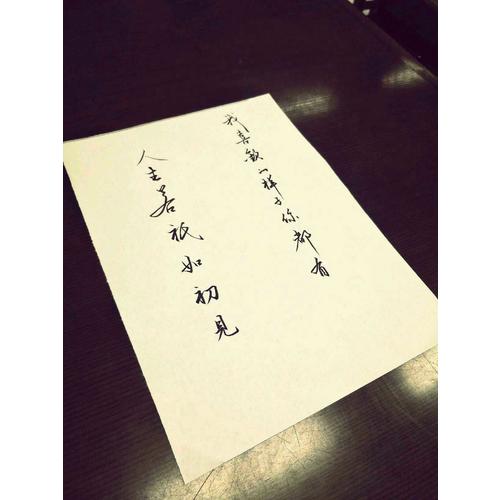 我喜歡的樣子你都有
人生若祇如初見